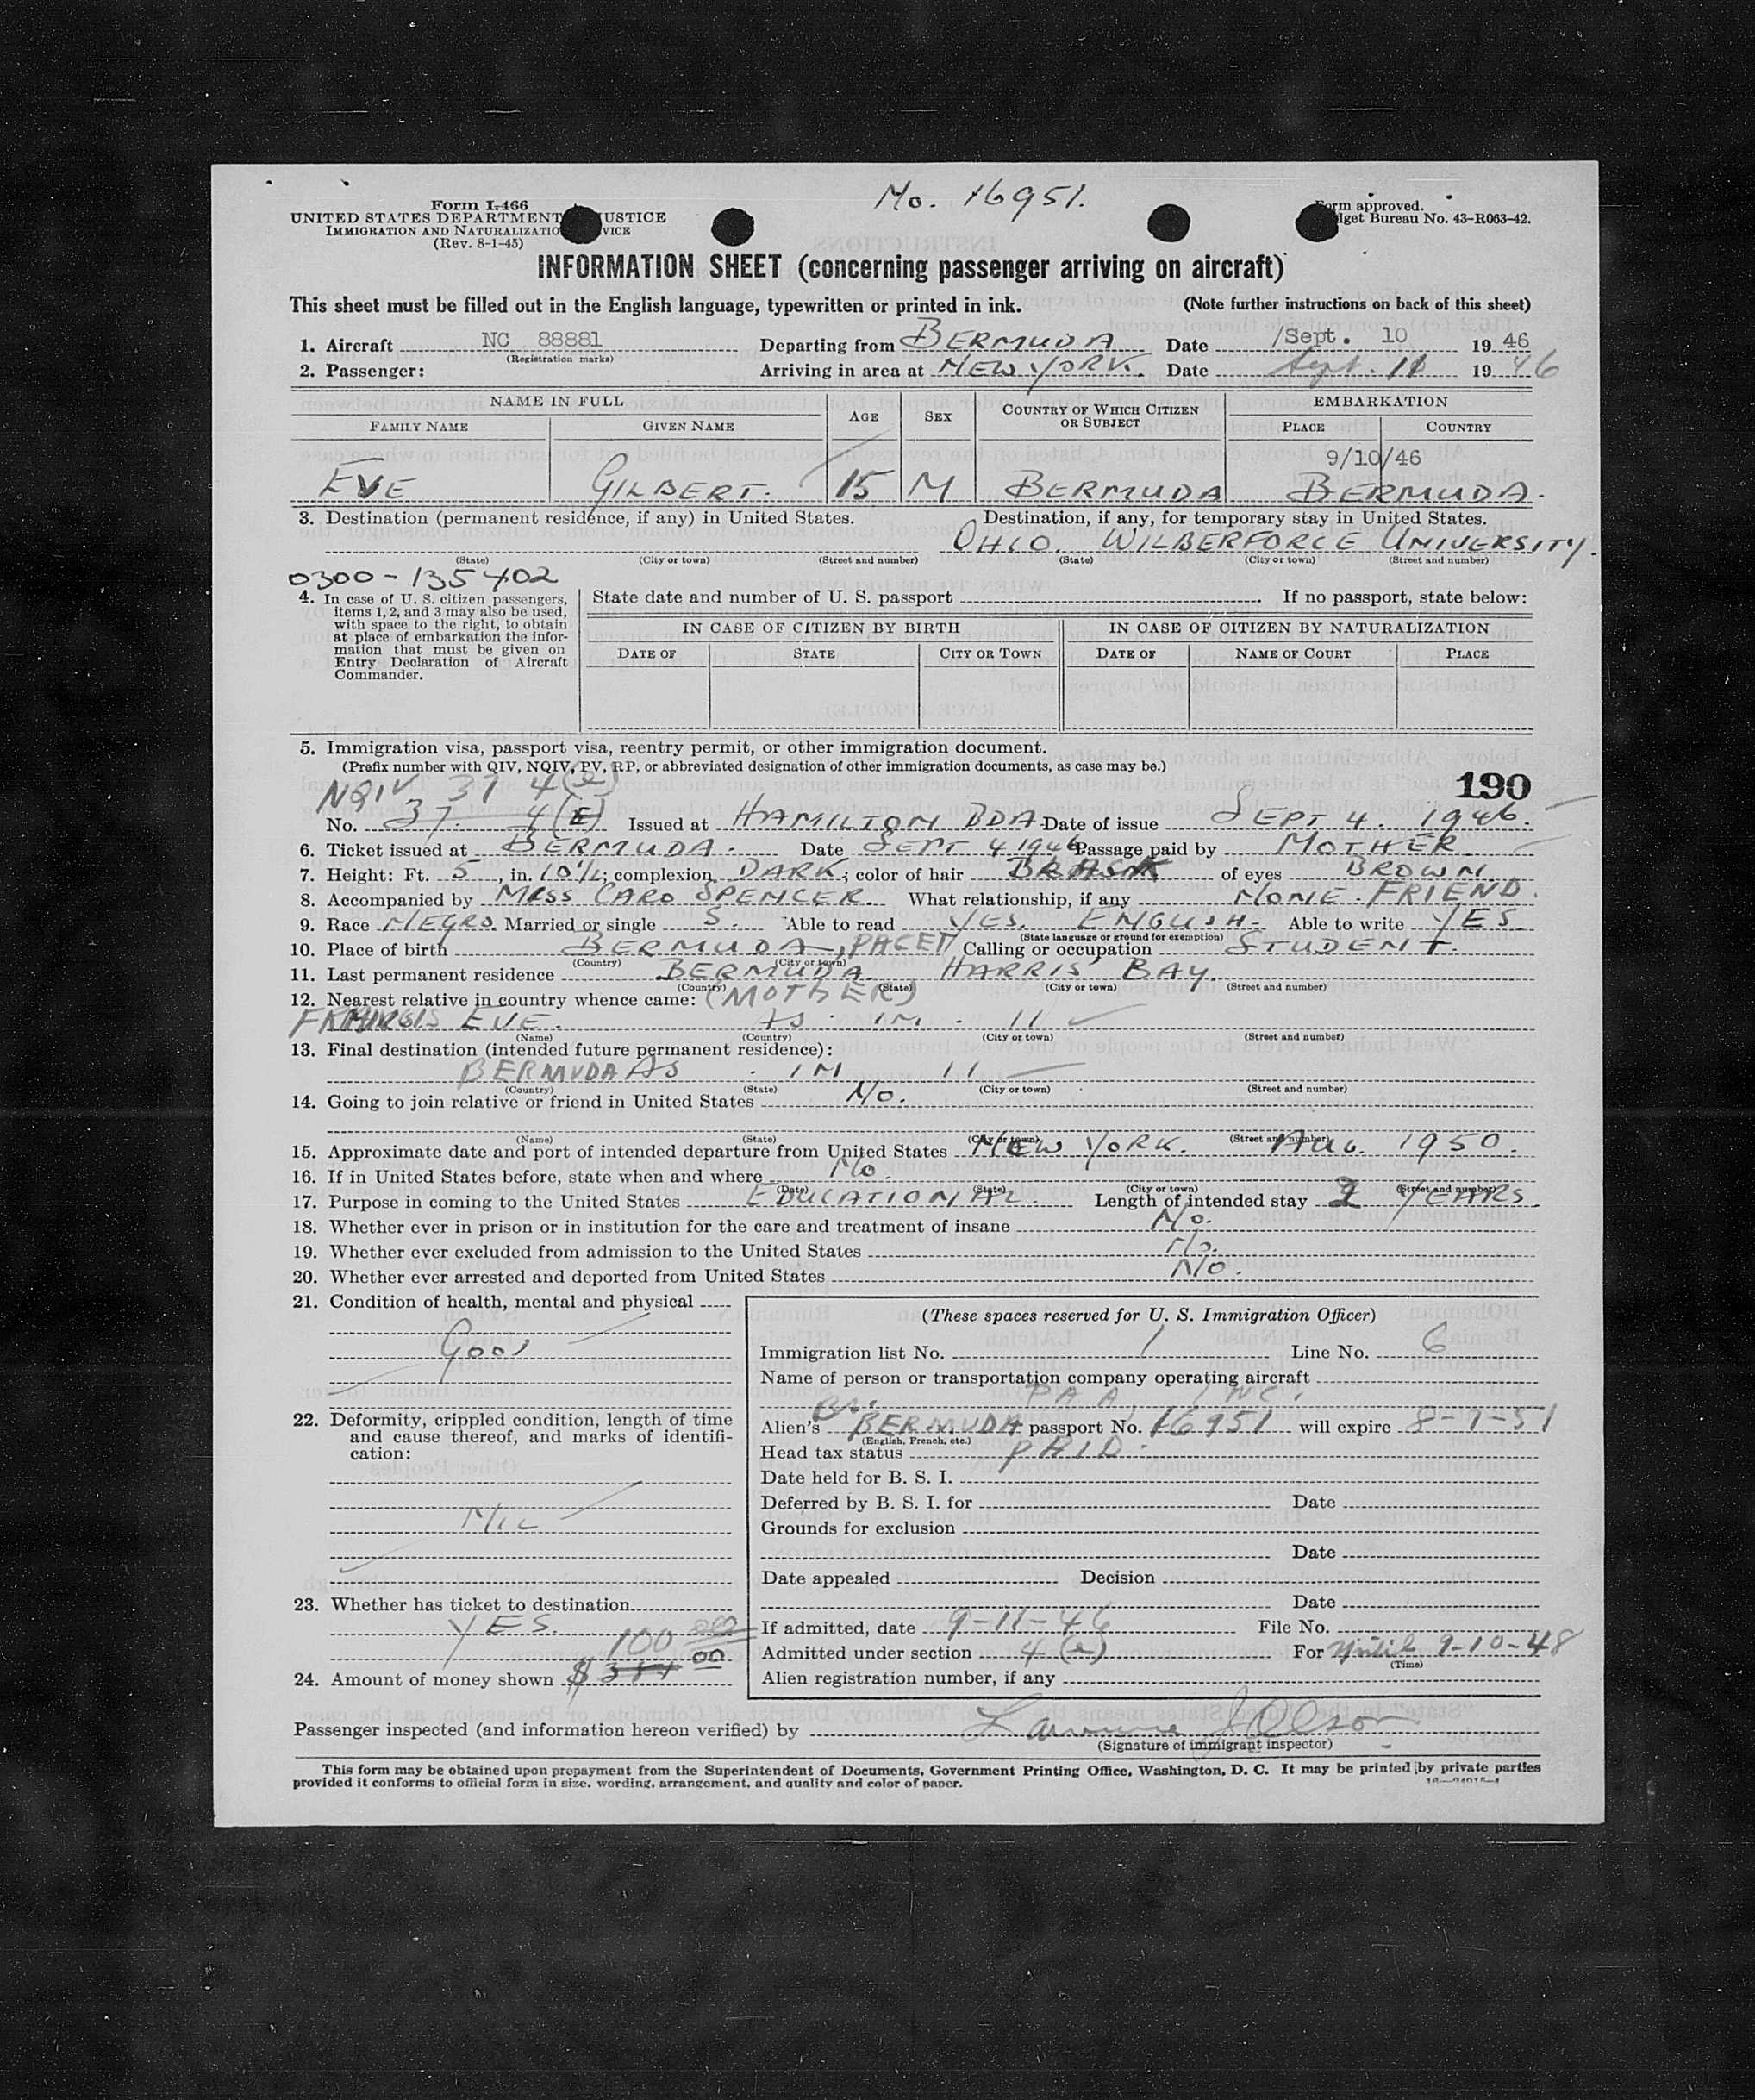 No. 16951.
Form I-466
UNITED STATES DEPARTMENT JUSTICE
IMMIGRATION AND NATURALIZATIO VICE
(Rev. 8-1-45)
orm approved.
get Bureau No. 43-R063-42.
INFORMATION SHEET (concerning passenger arriving on aircraft)
This sheet must be filled out in the English language, typewritten or printed in ink. (Note further instructions on back of this sheet)
1. Aircraft NC 88881 Departing from BERMUDA Date /Sept. 10 1946
(Registration marks)
2. Passenger: Arriving in area at NEW YORK. Date Sept. 11 1946
NAME IN FULL AGE SEX COUNTRY OF WHICH CITIZEN OR SUBJECT EMBARKATION
FAMILY NAME GIVEN NAME PLACE COUNTRY
9/10/46
EVE GILBERT. 15 M BERMUDA BERMUDA.
3. Destination (permanent residence, if any) in United States. Destination, if any, for temporary stay in United States.
OHIO. WILBERFORCE UNIVERSITY.
(State) (City or town) (Street and number) (State) (City or town) (Street and number)
0300-135402
4. In case of U. S. citizen passengers, items 1, 2, and 3 may also be used, with space to the right, to obtain at place of embarkation the information that must be given on Entry Declaration of Aircraft Commander.
State date and number of U. S. passport If no passport, state below:
IN CASE OF CITIZEN BY BIRTH IN CASE OF CITIZEN BY NATURALIZATION
DATE OF STATE CITY OR TOWN DATE OF NAME OF COURT PLACE
5. Immigration visa, passport visa, reentry permit, or other immigration document.
(Prefix number with QIV, NQIV, PV, RP, or abbreviated designation of other immigration documents, as case may be.)
190
NQIV 37 4(e)
No. 37. 4(E) Issued at HAMILTON BDA Date of issue SEPT 4. 1946.
6. Ticket issued at BERMUDA. Date SEPT 4 1946 Passage paid by MOTHER
7. Height: Ft. 5, in. 10½; complexion DARK; color of hair of eyes BROWN.
8. Accompanied by MISS CARO SPENCER. What relationship, if any NONE. FRIEND.
9. Race NEGRO. Married or single S. Able to read YES. ENGLISH. Able to write YES.
(State language or ground for exemption)
10. Place of birth BERMUDA, PAGET Calling or occupation STUDENT.
(Country) (City or town)
11. Last permanent residence BERMUDA. HARRIS' BAY.
(Country) (State) (City or town) (Street and number)
12. Nearest relative in country whence came: (MOTHER)
EVE. AS. IN. 11
(Name) (Country) (City or town) (Street and number)
13. Final destination (intended future permanent residence):
BERMUDA AS. IN 11
(Country) (State) (City or town) (Street and number)
14. Going to join relative or friend in United States No.
(Name) (State) (City or town) (Street and number)
15. Approximate date and port of intended departure from United States NEW YORK. AUG. 1950.
16. If in United States before, state when and where No.
(Date) (State) (City or town) (Street and number)
17. Purpose in coming to the United States EDUCATIONAL. Length of intended stay 2 YEARS.
18. Whether ever in prison or in institution for the care and treatment of insane No.
19. Whether ever excluded from admission to the United States No.
20. Whether ever arrested and deported from United States No.
21. Condition of health, mental and physical
Good
22. Deformity, crippled condition, length of time and cause thereof, and marks of identification:
NIL
23. Whether has ticket to destination
YES.
100 00
24. Amount of money shown $ 00
(These spaces reserved for U. S. Immigration Officer)
Immigration list No. 1 Line No. 6
Name of person or transportation company operating aircraft
PAA, INC.
Br.
Alien's BERMUDA passport No. 16951 will expire 8-7-51
(English, French, etc.)
Head tax status PAID.
Date held for B. S. I.
Deferred by B. S. I. for Date
Grounds for exclusion
Date
Date appealed Decision
Date
If admitted, date 9-11-46 File No.
Admitted under section 4(e) For Until 9-10-48
(Time)
Alien registration number, if any
Passenger inspected (and information hereon verified) by
(Signature of immigrant inspector)
This form may be obtained upon prepayment from the Superintendent of Documents, Government Printing Office, Washington, D. C. It may be printed by private parties
provided it conforms to official form in size, wording, arrangement, and quality and color of paper.